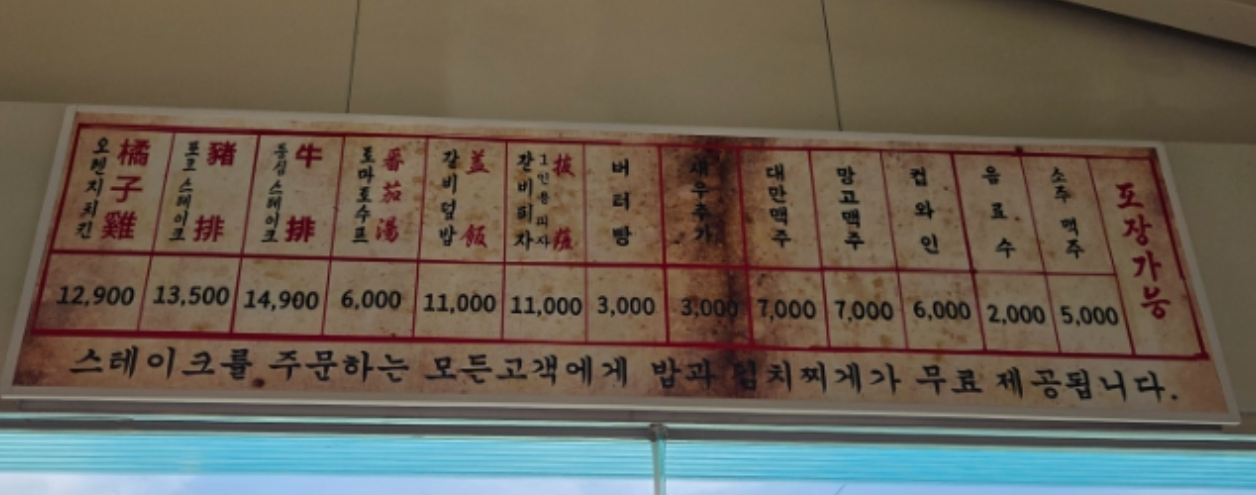 오렌지치킨 橘子雞 12,900
포크스테이크 豬排 13,500
등심스테이크 牛排 14,900
토마토수프 番茄湯 6,000
갈비덮밥 盖飯 11,000
갈비피자 1인용피자 披薩 11,000
버터빵 3,000
새우추가 3,000
대만맥주 7,000
망고맥주 7,000
컵와인 6,000
음료수 2,000
소주 맥주 5,000
포장가능
스테이크를 주문하는 모든고객에게 밥과 김치찌게가 무료 제공됩니다.